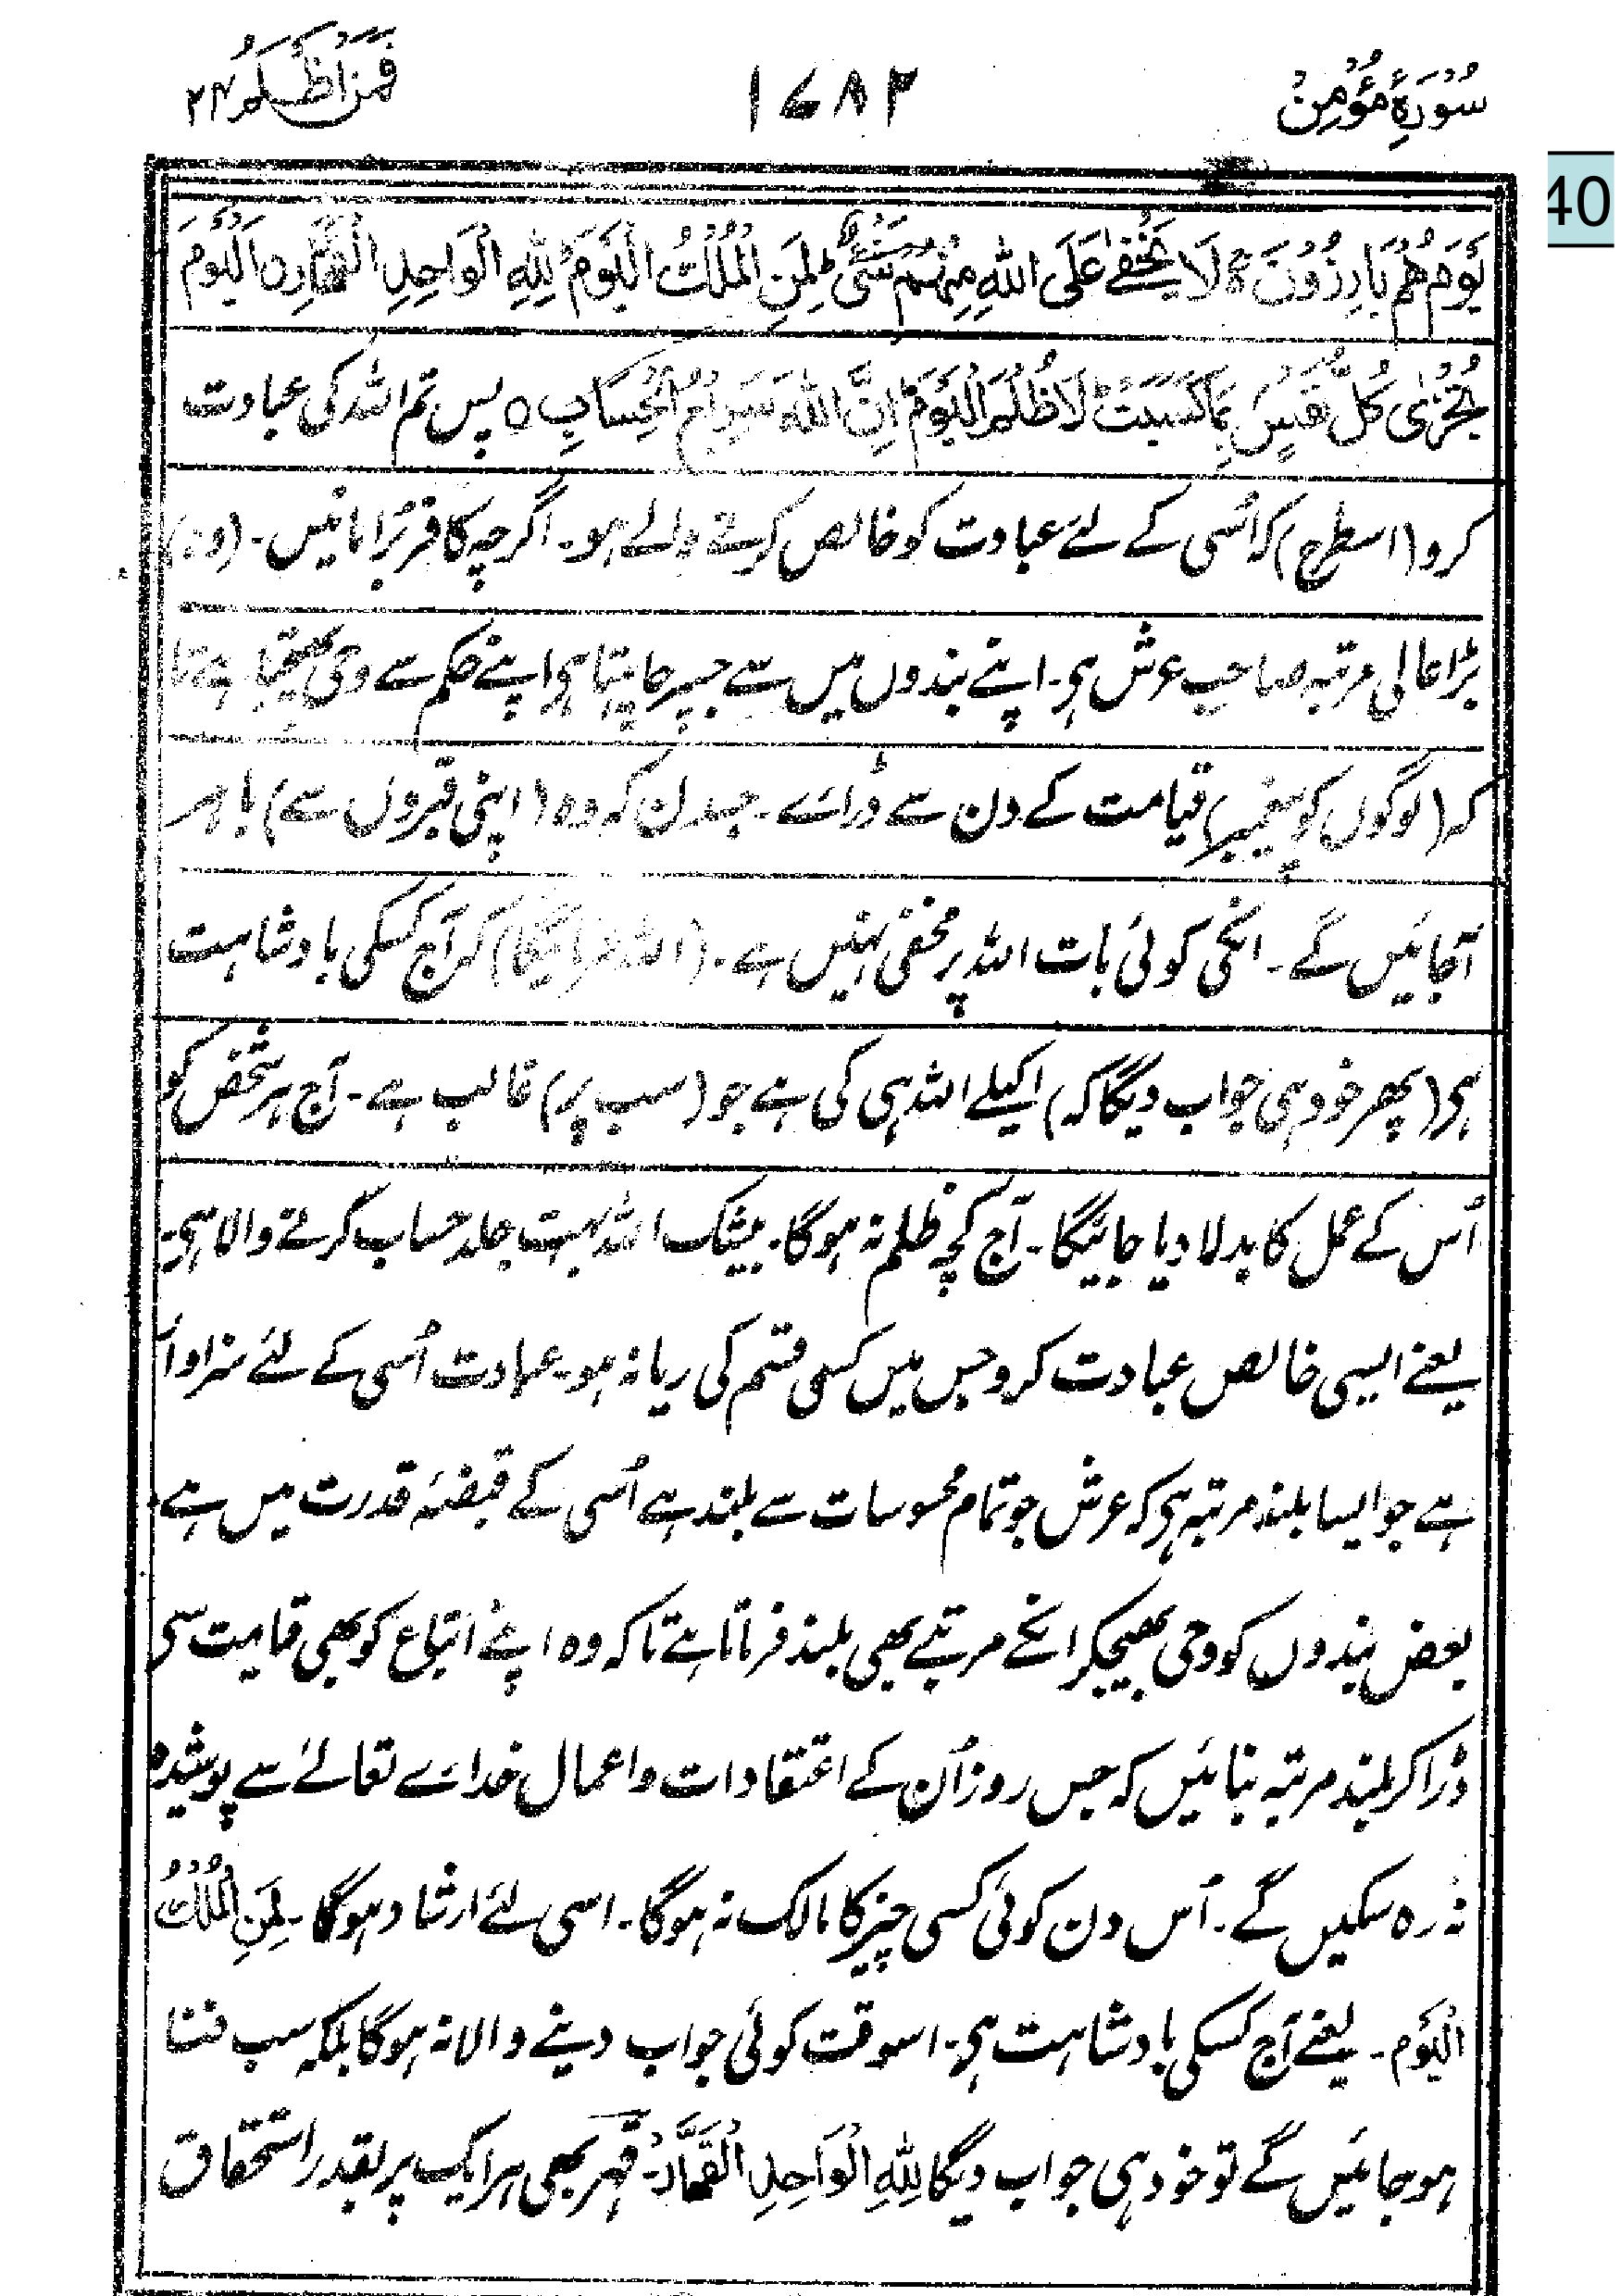 سُوْرَۂِ مُؤْمِنْ
١٦٨٢
فَمَنْ اَظْلَمُ ٢٤
40
يَوْمَ هُمْ بَارِزُوْنَ ۚ لَا يَخْفٰى عَلَى اللهِ مِنْهُمْ شَيْءٌ ؕ لِمَنِ الْمُلْكُ الْيَوْمَ ؕ لِلّٰهِ الْوَاحِدِ الْقَهَّارِ ۝ اَلْيَوْمَ
تُجْزٰى كُلُّ نَفْسٍ بِمَا كَسَبَتْ ؕ لَا ظُلْمَ الْيَوْمَ ؕ اِنَّ اللهَ سَرِيْعُ الْحِسَابِ ۝ پس تم اللہ کی عبادت
کرو (اسطرح) کہ اُسی کے لئے عبادت کو خالص کرنے والے ہو۔ اگرچہ کافر بُرا مانیں۔ (وہ)
بڑا عالی مرتبہ صاحبِ عرش ہی۔ اپنے بندوں میں سے جسپر چاہتا ہی اپنے حکم سے وحی بھیجتا ہے تا
کہ (لوگوں کو پیغمبر) قیامت کے دن سے ڈرائے۔ جسدن کہ وہ (اپنی قبروں سے) باہر
آجائیں گے۔ انکی کوئی بات اللہ پر مخفی نہیں ہے۔ (اللہ فرمائیگا) کہ آج کسکی بادشاہت
ہی (پھر خود ہی جواب دیگا کہ) اکیلے اللہ ہی کی ہے جو (سب پر) غالب ہے۔ آج ہر شخص کو
اُس کے عمل کا بدلا دیا جائیگا۔ آج کچھ ظلم نہ ہوگا۔ بیشک اللہ بہت جلد حساب کرنے والا ہی۔
یعنے ایسی خالص عبادت کرو جس میں کسی قسم کی ریا نہ ہو۔ عبادت اُسی کے لئے سزاوار
ہے جو ایسا بلند مرتبہ ہی کہ عرش جو تمام محسوسات سے بلند ہے اُسی کے قبضۂ قدرت میں ہے۔
بعض بندوں کو وحی بھیجکر انکے مرتبے بھی بلند فرماتا ہے تاکہ وہ اپنے اتباع کو بھی قیامت سی
ڈرا کر بلند مرتبہ بنائیں کہ جس روز اُن کے اعتقادات و اعمال خدائے تعالےٰ سے پوشیدہ
نہ رہ سکیں گے۔ اُس دن کوئی کسی چیز کا مالک نہ ہوگا۔ اسی لئے ارشاد ہوگا۔ لِمَنِ الْمُلْكُ
الْيَوْم۔ یعنے آج کسکی بادشاہت ہی۔ اسوقت کوئی جواب دینے والا نہ ہوگا بلکہ سب فنا
ہو جائیں گے تو خود ہی جواب دیگا لِلّٰهِ الْوَاحِدِ الْقَهَّارْ۔ قہر بھی ہر ایک پر بقدر استحقاق